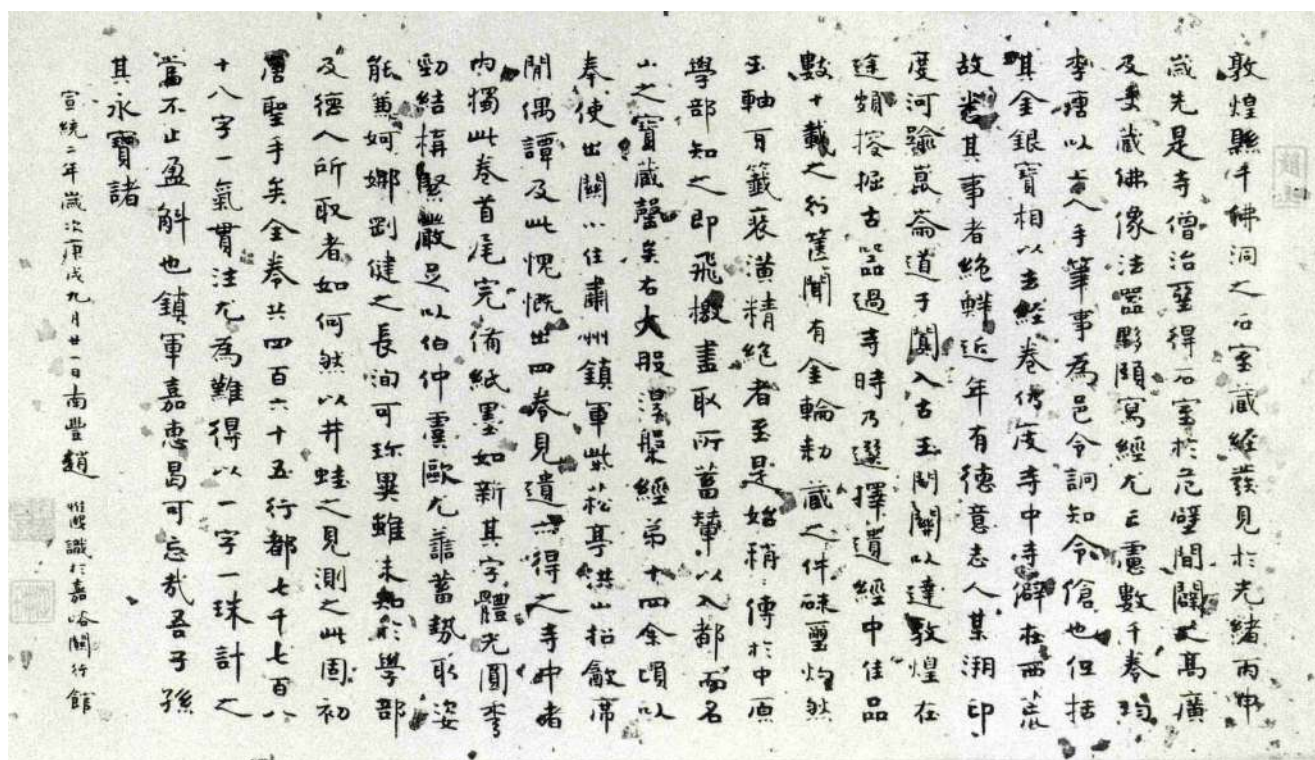 敦煌縣千佛洞之石室藏經發見於光緒丙申
歲先是寺僧治壁得石室於范壁間闢之高廣
及丈藏佛像法器夥頤寫經尤正慮數千卷均
李唐以上人手筆事為邑令詗知令傖也但括
其金銀寶相以去經卷傳度寺中寺僻在西荒
故悉其事者絶鮮近年有德意志人某溯印
度河踰崑崙道于闐入古玉門關以達敦煌在
途頗搜掘古器過寺時乃選擇遺經中佳品
數十載之行篋聞有金輪敕藏之件硃璽灼然
玉軸百籤裝潢精絶者至是始稍稍傳於中原
學部知之即飛檄盡取所蓄輦以入都而名
山之寶藏罄矣右大般涅槃經弟十四余頃以
奉使出關小住肅州鎮軍柴菘亭洪山招飲席
間偶譚及此慨慨出四卷見遺為得之寺中者
內獨此卷首尾完備紙墨如新其字體尤圓秀
勁結構緊嚴足以伯仲虞歐尤蓄勢取姿
能兼婀娜剛健之長洵可珍異雖未知於學部
及德人所取者如何然以井蛙之見測之此固初
唐聖手矣全卷共四百六十五行都七千七百八
十八字一氣貫注尤為難得以一字一珠計之
當不止盈斛也鎮軍嘉惠曷可忘哉吾子孫
其永寶諸
宣統二年歲次庚戌九月廿一日南豐趙惟熙識於嘉峪關行館